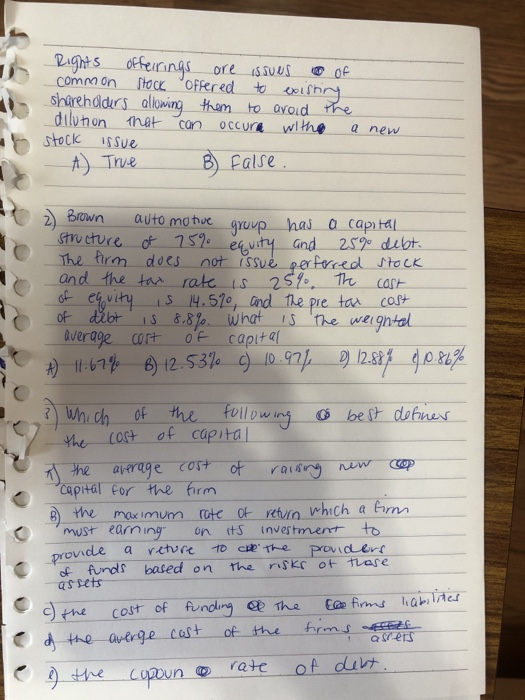 Rights offerings are issues of
common stock offered to existing
shareholders allowing them to avoid the
dilution that can occure with a new
stock issue
A) True B) False.
2) Brown automotive group has a capital
structure of 75% equity and 25% debt.
The firm does not issue perferred stock
and the tax rate is 25%. The cost
of equity is 14.5%, and the pre tax cost
of debt is 8.8%. What is the weighted
average cost of capital
A) 11.67% B) 12.53% C) 10.97% D) 12.88% e) 10.86%
3) Which of the following best defines
the cost of capital
A) the average cost of raising new
capital for the firm
B) the maximum rate of return which a firm
must earning on its investment to
provide a return to the providers
of funds based on the risks of those
assets
c) the cost of funding the firms liabilities
d) the averge cost of the firms assets
e) the copoun rate of debt.